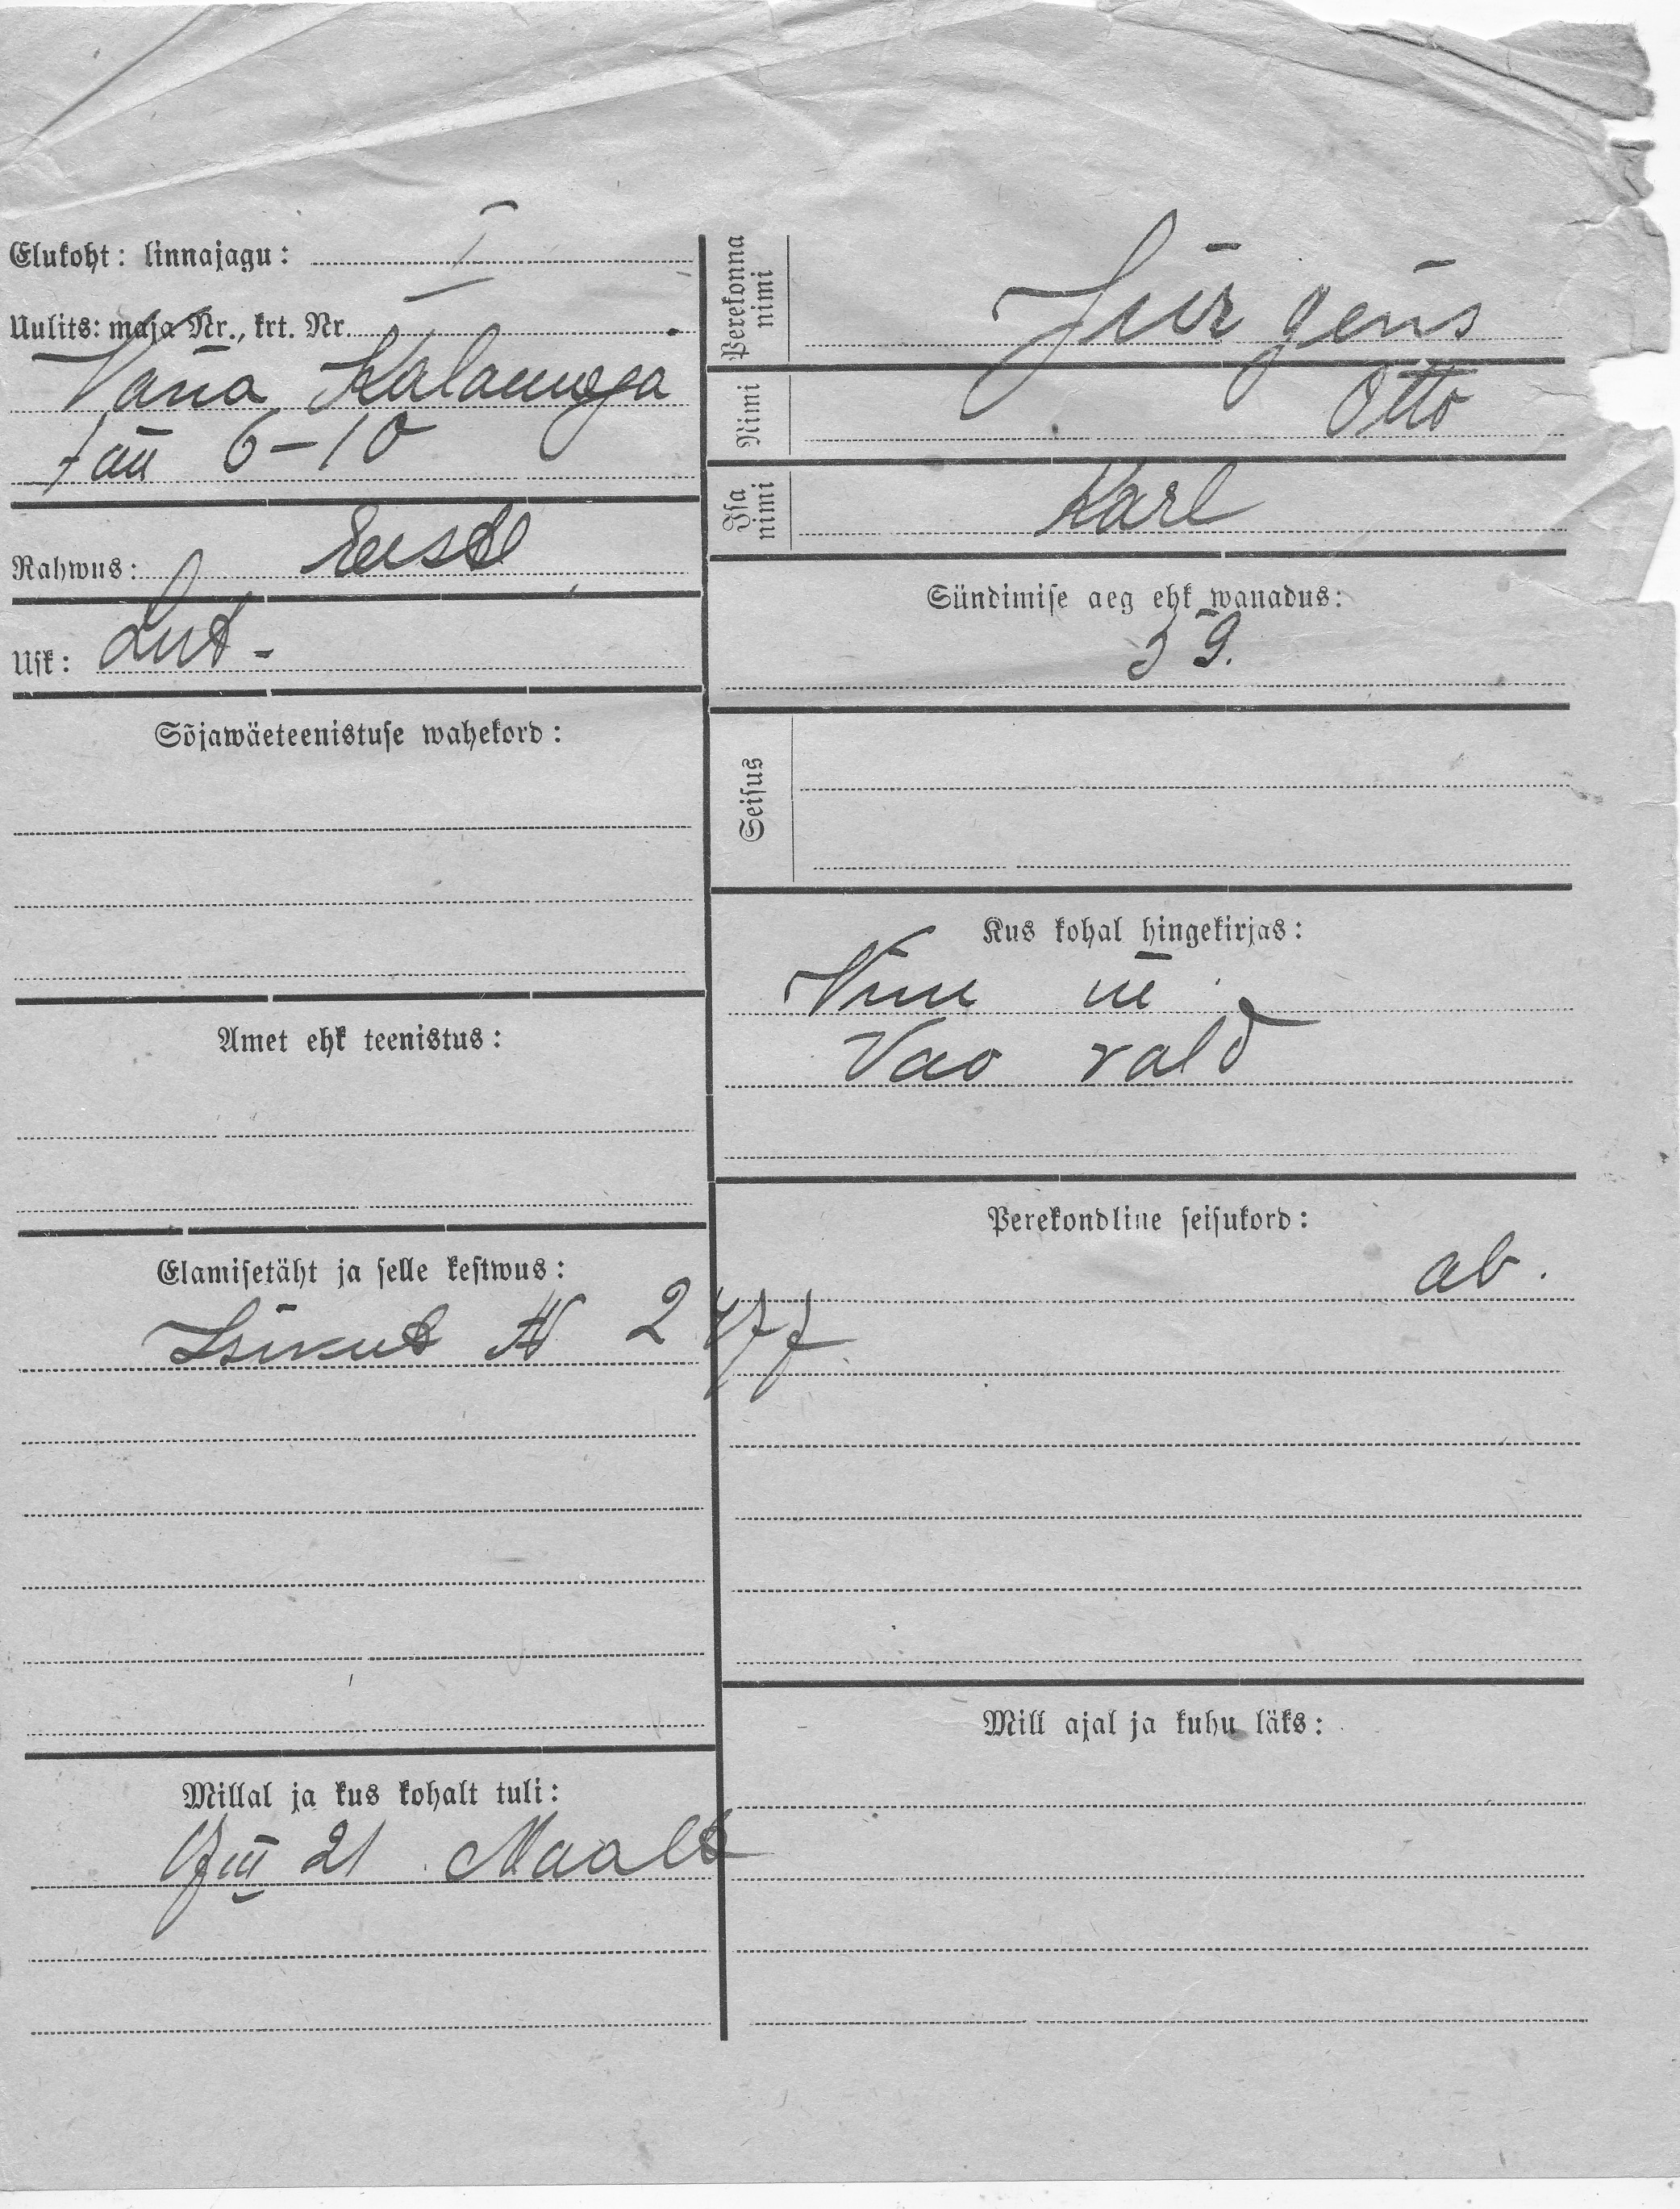 Elukoht: linnajagu: I
Uulits: maja Nr., krt. Nr.
Vana Kalamaja
tän 6-10
Rahwus: Eesti
Usk: Lut-
Sõjawäeteenistuse wahekord:
Amet ehk teenistus:
Elamisetäht ja selle kestwus:
Isikut № 2477
Millal ja kus kohalt tuli:
VIII 21 Maalt
Perekonna nimi Jürgens
Nimi Otto
Isa nimi Karl
Sündimise aeg ehk wanadus:
39.
Seisus
Kus kohal hingekirjas:
Vao vald
Perekondline seisukord:
ab.
Mill ajal ja kuhu läks: